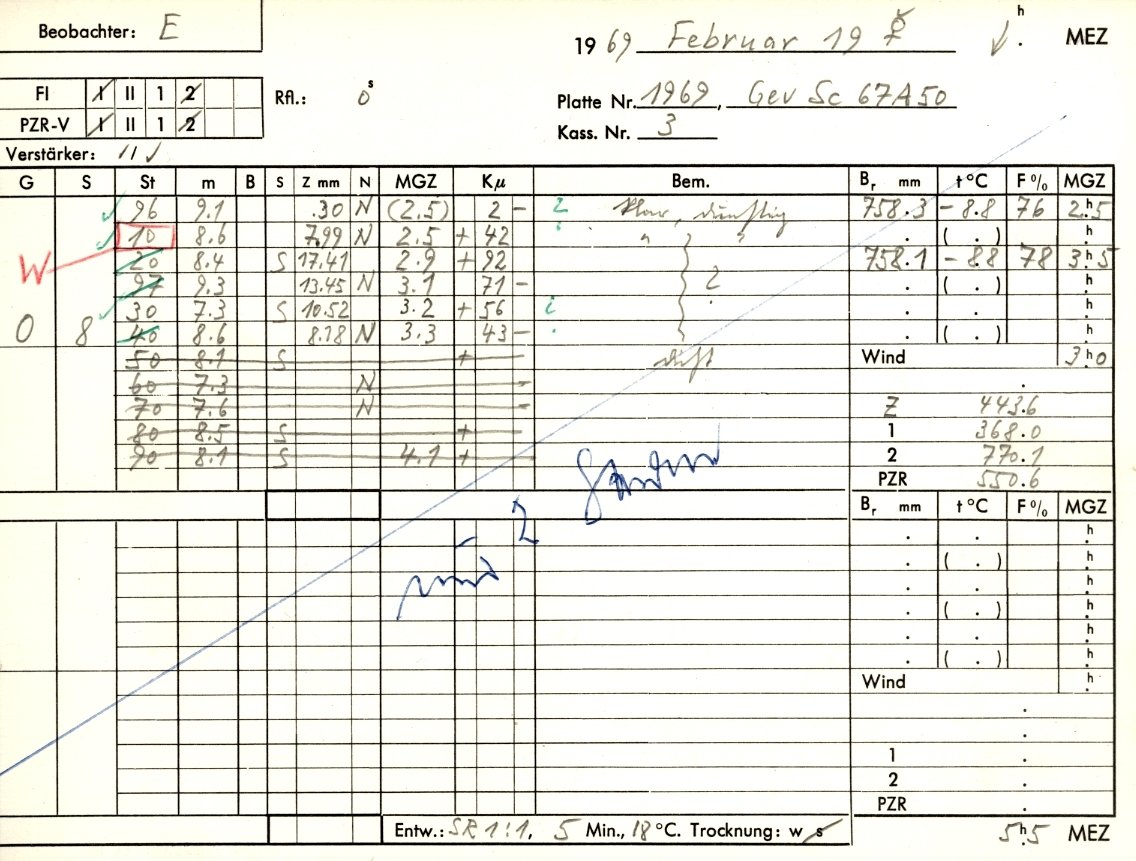 Beobachter: E
19 69 Februar 19 ☿ h . MEZ
FI I II 1 2
PZR-V I II 1 2
Rfl.: 0 s
Platte Nr. 1969, Gev Sc 67A50
Kass. Nr. 3
Verstärker: 11 ✓
G S St m B S Z mm N MGZ Kμ Bem. Br mm t °C F % MGZ
96 9.1 .30 N (2.5) 2 - ? klar, dunstig 758.3 - 8.8 76 2h.5
10 8.6 7.99 N 2.5 + 42 " " . ( . ) h.
W 20 8.4 S 17.41 2.9 + 92 758.1 - 8.8 78 3h.5
97 9.3 13.45 N 3.1 71 - ? . ( . ) h.
30 7.3 S 10.52 3.2 + 56 . . h.
0 8 40 8.6 8.18 N 3.3 43 - . ( . ) h.
50 8.1 S + dicht Wind 3h.0
60 7.3 N - .
70 7.6 N - Z 443.6
80 8.5 S + 1 368.0
90 8.1 S 4.1 + 2 770.1
PZR 550.6
Br mm t °C F % MGZ
. . h.
. ( . ) h.
. . h.
. ( . ) h.
. . h.
. ( . ) h.
Wind h.
.
.
1 .
2 .
PZR .
2
Entw.: SR 1:1, 5 Min., 18 °C. Trocknung: w s 5h.5 MEZ